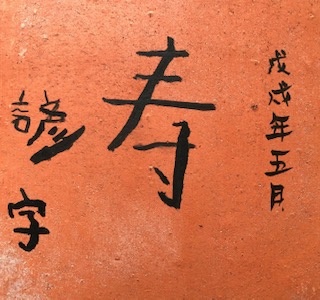 戊戌年五月
寿
諺字